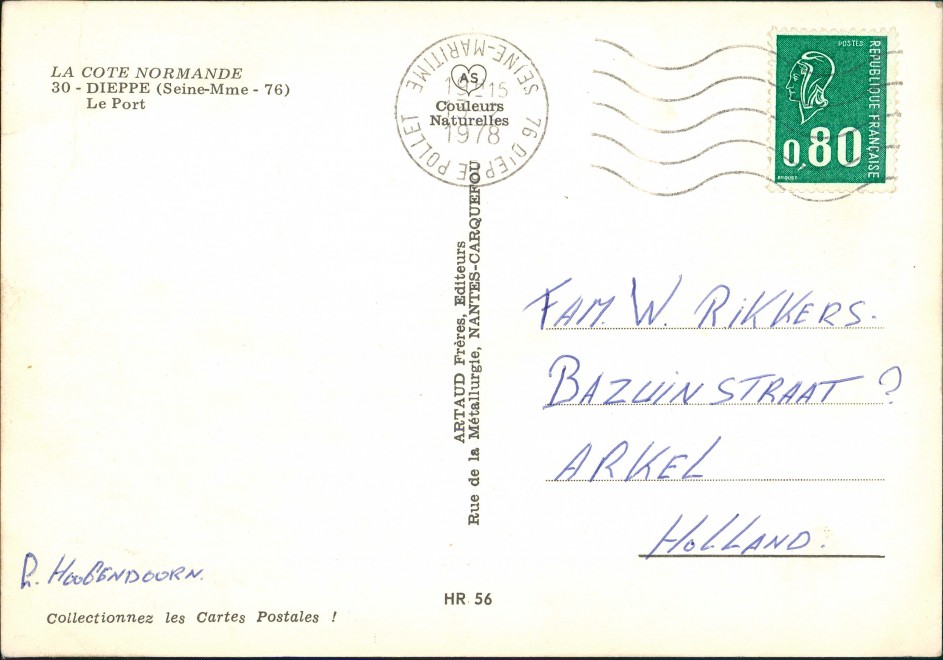 LA COTE NORMANDE
30 - DIEPPE (Seine-Mme - 76)
Le Port
76 DIEPPE POLLET
SEINE-MARITIME
15
1978
AS
Couleurs
Naturelles
POSTES
REPUBLIQUE FRANÇAISE
0,80
ARTAUD Frères, Editeurs
Rue de la Métallurgie, NANTES-CARQUEFOU
FAM. W. RiKKERS.
BAZUINSTRAAT ?
ARKEL
HOLLAND.
HOOGENDOORN.
Collectionnez les Cartes Postales !
HR 56